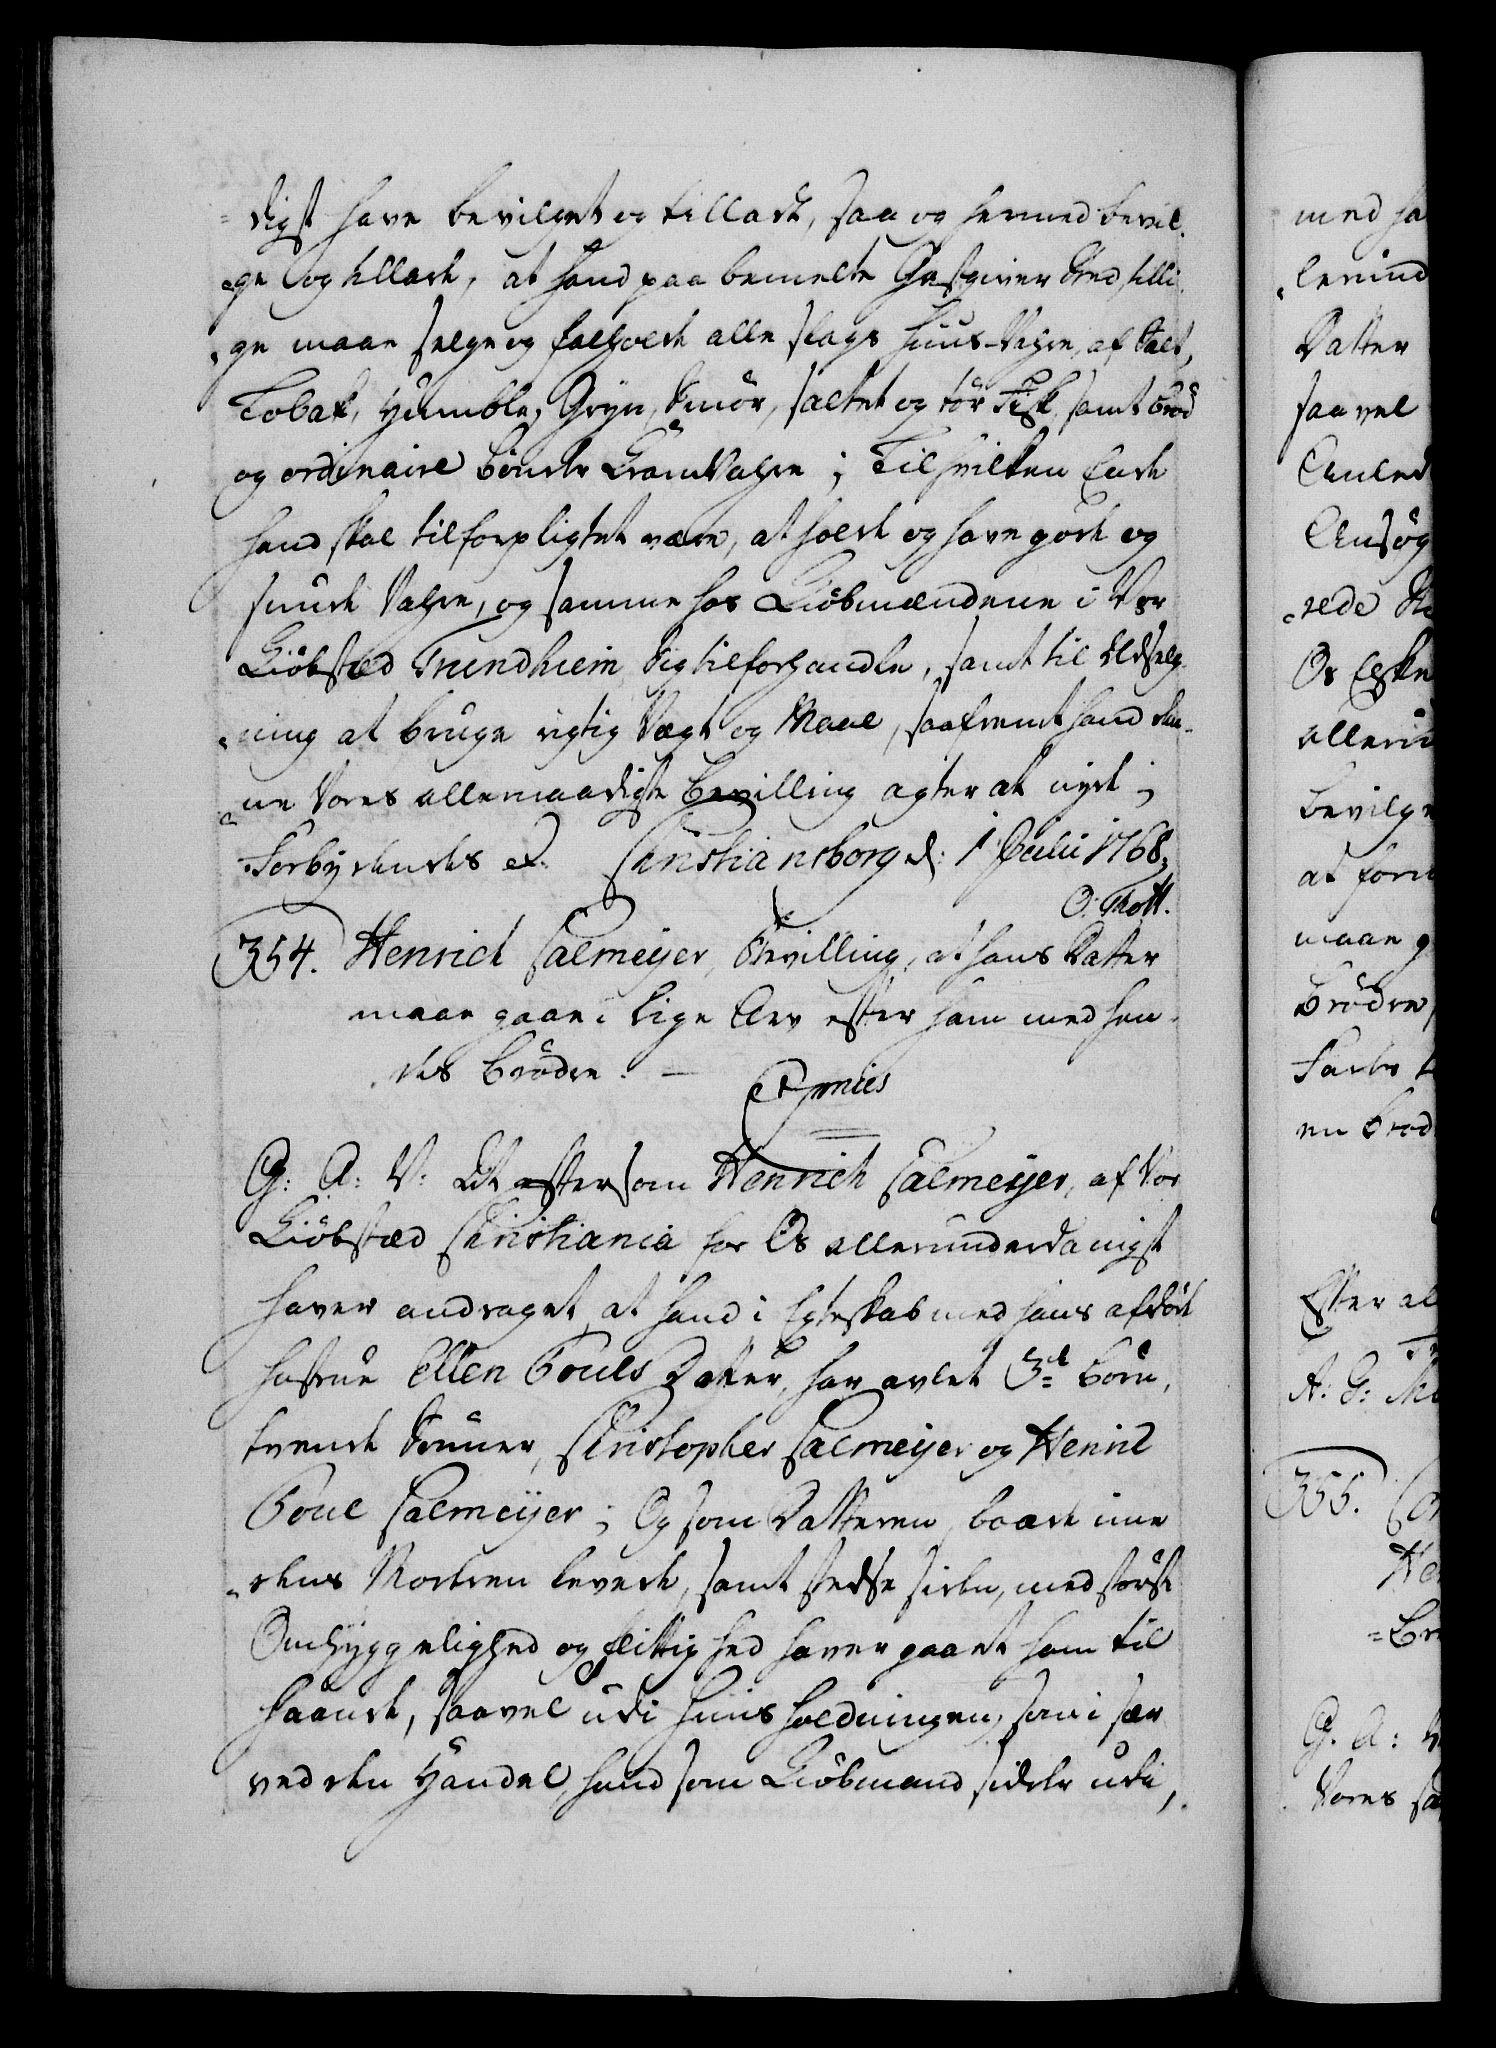 digst have bevilget og tilladt, saa og hermed bevil-
ge og tillade, at hand paa bemelte Gestgiver Sted, tilli-
ge maae selge og falholde alle slags Huus-Vahre, af Salt,
Tobak, Humble, Gryn, Smör, saltet og tör Fisk, samt Bröd
og ordinaire Bönder Kram Vahre; Til hvilken Ende
hand skal tilforpligtet være, at holde og have gode og
sunde Vahre, og samme hos Kiöbmændene i Vor
Kiöbstæd Trundhiem sig tilforhandle, samt til Udselg-
ning at bruge rigtig Vægt og Maal, saafremt hand den-
ne Vores allernaadigste Bevilling agter at nyde;
Forbydendes &. Christiansborg d: 1 Julii 1768;
O: Thott.
354. Henrich Calmeyer, Bevilling, at hans Datter
maae gaae i Lige Arv efter ham med hen-
des Brödre. —
G: A: V: At eftersom Henrich Calmeyer, af Vor
Kiöbstæd Christiania for Os allerunderdanigst
haver andraget, at hand i Egteskab med hans afdöde
Hustrue Ellen Pouls Datter, har avlet 3de Börn,
tvende Sönner, Christopher Calmeyer og Henric
Poul Calmeyer; Og som Datteren, baade ime-
dens Moderen levede, samt stedse siden, med störste
Omhyggelighed og flittighed haver gaaet ham til
Haande, saavel udi Huusholdningen, som i sær
ved den Handel, hand som Kiöbmand sidder udi,
med ha
lerund
Datter
saavel
Anled
Ansög
rede
Os Elske
allerun
bevilge
at forn
maae g
Brödre,
en Brod
Efter al
A: G:
355.
Bre
G. A:
Vores